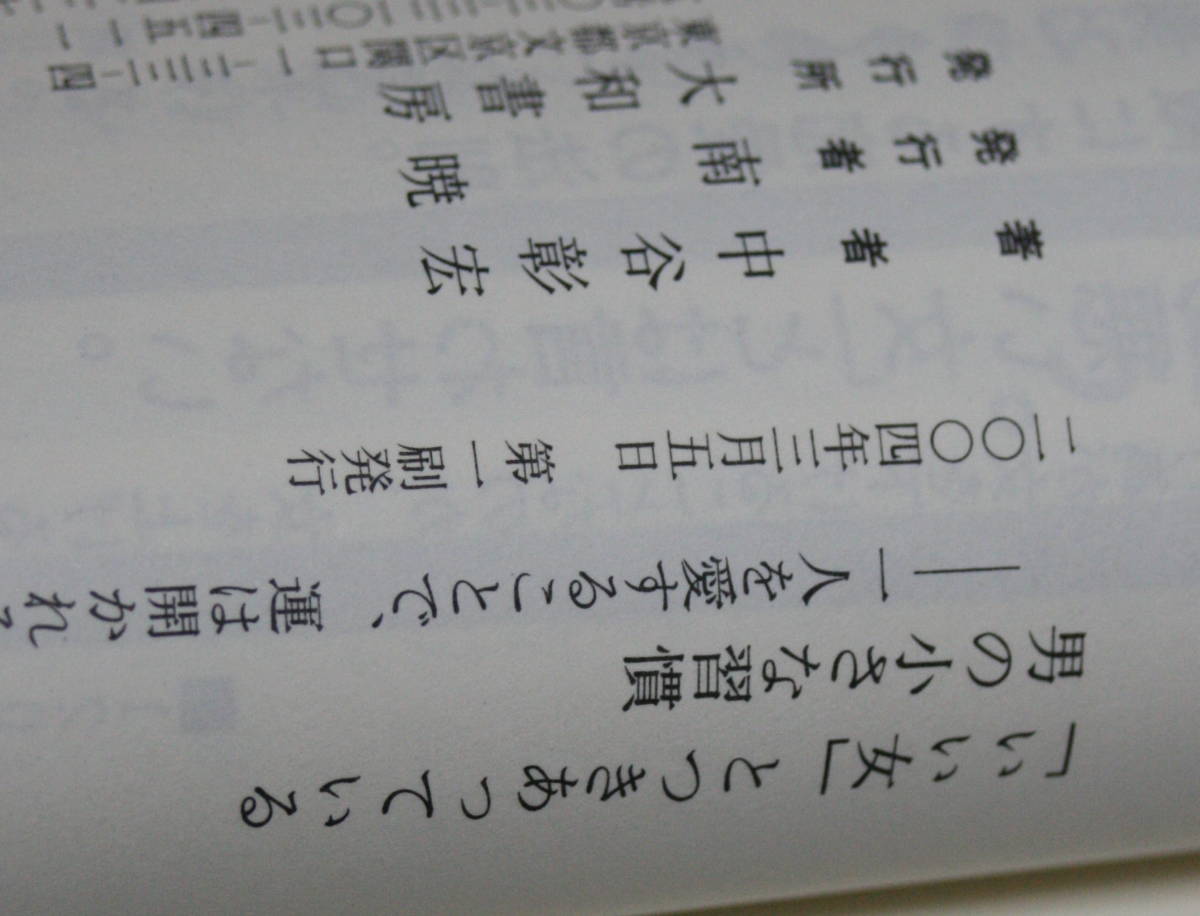 「いい女」とつきあっている
男の小さな習慣
――一人を愛することで、運は開かれ
二〇〇四年三月五日　第一刷発行
著者　中谷彰宏
発行者　南　暁
発行所　大和書房
東京都文京区関口一-三三-四
〇三-三二〇三-四五一一